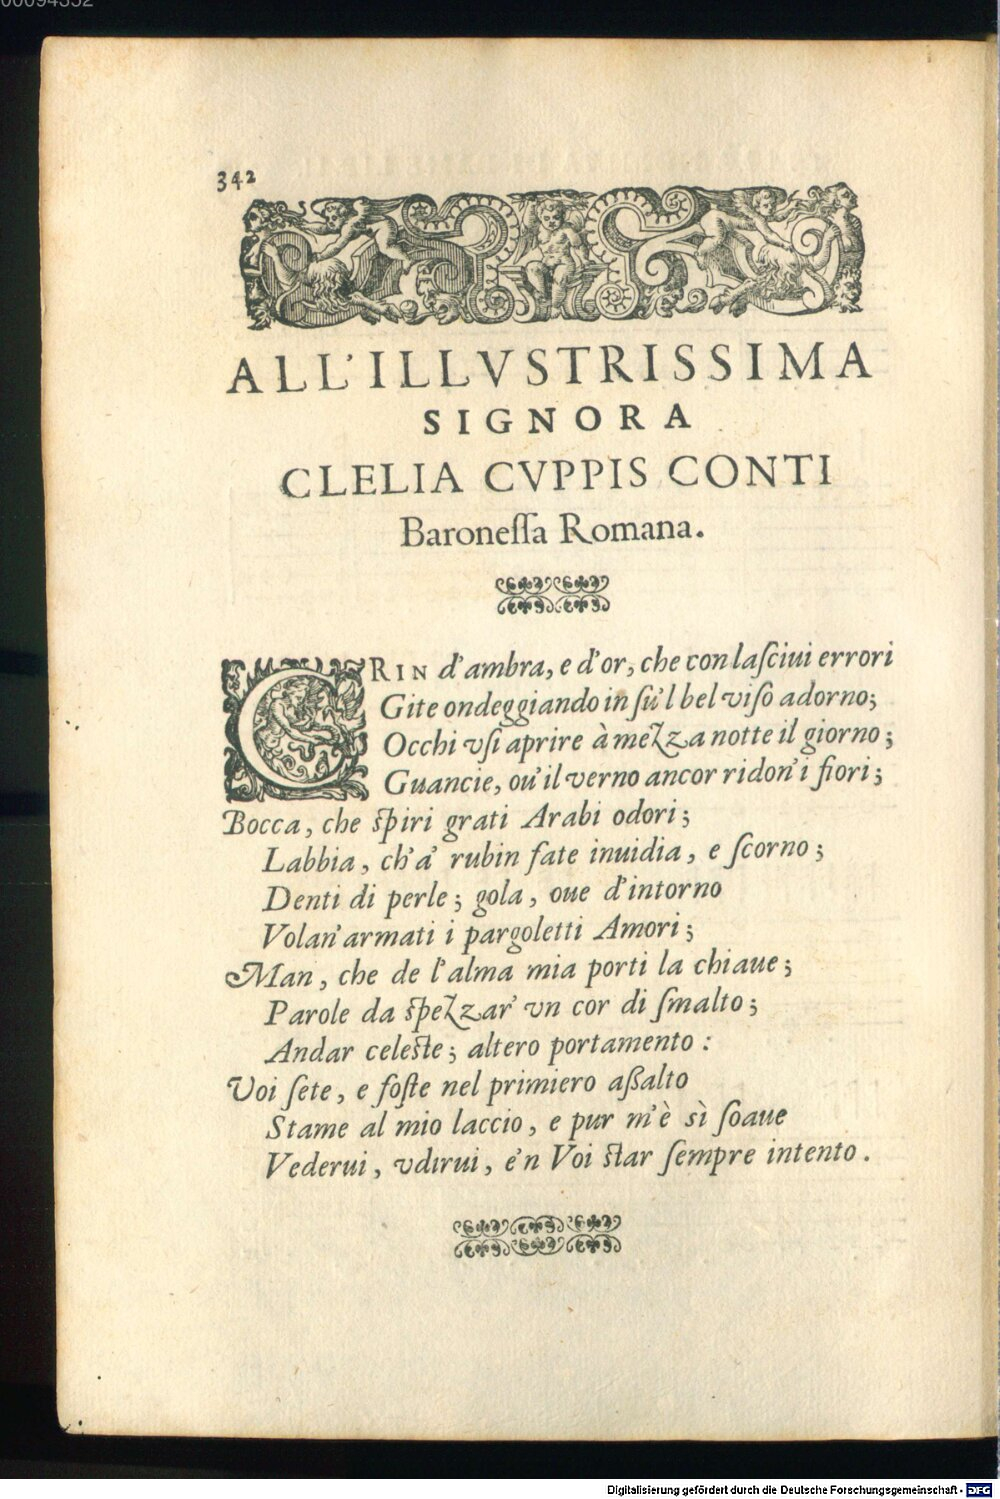 342
ALL'ILLVSTRISSIMA
SIGNORA
CLELIA CVPPIS CONTI
Baroneſſa Romana.
CRIN d'ambra, e d'or, che con laſciui errori
Gite ondeggiando in ſu'l bel viſo adorno;
Occhi vſi aprire à mezza notte il giorno;
Guancie, ou'il verno ancor ridon'i fiori;
Bocca, che ſpiri grati Arabi odori;
Labbia, ch'a' rubin fate inuidia, e ſcorno;
Denti di perle; gola, oue d'intorno
Volan'armati i pargoletti Amori;
Man, che de l'alma mia porti la chiaue;
Parole da ſpezzar' vn cor di ſmalto;
Andar celeſte; altero portamento:
Voi ſete, e foſte nel primiero aſſalto
Stame al mio laccio, e pur m'è sì ſoaue
Vederui, vdirui, e'n Voi ſtar ſempre intento.
Digitalisierung gefördert durch die Deutsche Forschungsgemeinschaft - DFG